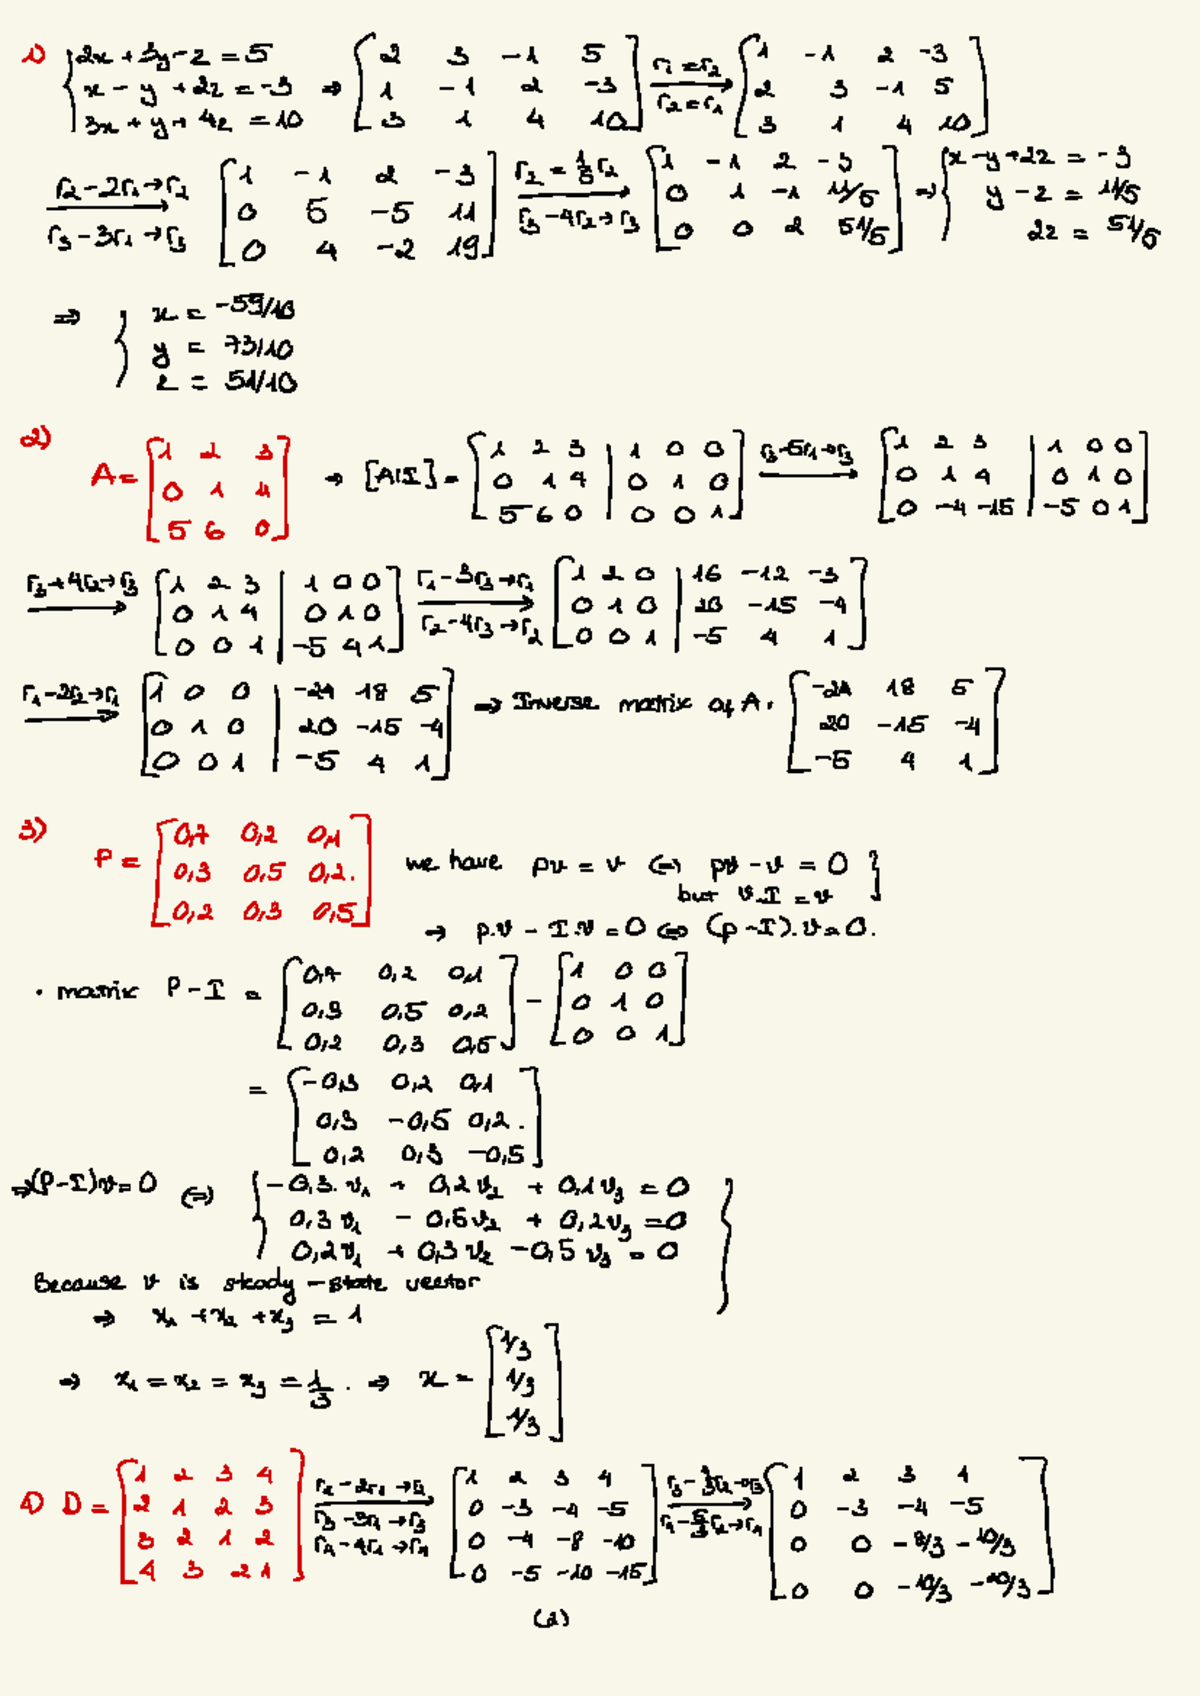 1) { 2x + 3y - z = 5
x - y + 2z = -3
3x + y + 4z = 10
⇒ [ 2 3 -1 5
1 -1 2 -3
3 1 4 10 ]
r1 = r2
r2 = r1
[ 1 -1 2 -3
2 3 -1 5
3 1 4 10 ]
r2 - 2r1 → r2
r3 - 3r1 → r3
[ 1 -1 2 -3
0 5 -5 11
0 4 -2 19 ]
r2 = 1/5 r2
r3 - 4r2 → r3
[ 1 -1 2 -3
0 1 -1 11/5
0 0 2 51/5 ]
⇒ { x - y + 2z = -3
y - z = 11/5
2z = 51/5
⇒ { x = -59/10
y = 73/10
z = 51/10
2)
A = [ 1 2 3
0 1 4
5 6 0 ]
→ [A|I] = [ 1 2 3 | 1 0 0
0 1 4 | 0 1 0
5 6 0 | 0 0 1 ]
r3 - 5r1 → r3
[ 1 2 3 | 1 0 0
0 1 4 | 0 1 0
0 -4 -15 | -5 0 1 ]
r3 + 4r2 → r3
[ 1 2 3 | 1 0 0
0 1 4 | 0 1 0
0 0 1 | -5 4 1 ]
r1 - 3r3 → r1
r2 - 4r3 → r2
[ 1 2 0 | 16 -12 -3
0 1 0 | 20 -15 -4
0 0 1 | -5 4 1 ]
r1 - 2r2 → r1
[ 1 0 0 | -24 18 5
0 1 0 | 20 -15 -4
0 0 1 | -5 4 1 ]
⇒ Inverse matrix of A.
[ -24 18 5
20 -15 -4
-5 4 1 ]
3)
P = [ 0,7 0,2 0,1
0,3 0,5 0,2.
0,2 0,3 0,5 ]
we have pv = v ⇔ pv - v = 0 }
but v.I = v
→ p.v - I.v = 0 ⇔ (p - I).v = 0.
. matrix P - I = [ 0,7 0,2 0,1
0,3 0,5 0,2
0,2 0,3 0,5 ]
- [ 1 0 0
0 1 0
0 0 1 ]
= [ -0,3 0,2 0,1
0,3 -0,5 0,2.
0,2 0,3 -0,5 ]
⇒ (P - I)v = 0 ⇔ { -0,3. v1 + 0,2v2 + 0,1v3 = 0
0,3v1 - 0,5v2 + 0,2v3 = 0
0,2v1 + 0,3v2 - 0,5v3 = 0 }
Because v is steady - state vector
⇒ x1 + x2 + x3 = 1
⇒ x1 = x2 = x3 = 1/3 . ⇒ x = [ 1/3
1/3
1/3 ]
D = [ 1 2 3 4
2 1 2 3
3 2 1 2
4 3 2 1 ]
r2 - 2r1 → r2
r3 - 3r1 → r3
r4 - 4r1 → r4
[ 1 2 3 4
0 -3 -4 -5
0 -4 -8 -10
0 -5 -10 -15 ]
r4 - 5/3 r2 → r4
[ 1 2 3 4
0 -3 -4 -5
0 0 -8/3 -10/3
0 0 -10/3 -20/3 ]
(1)